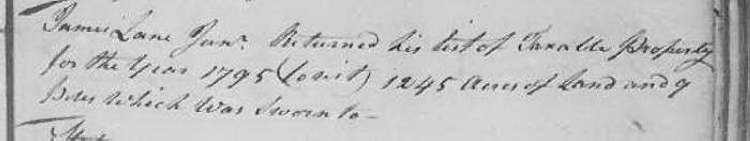 James Lane Junr. Returned his list of Taxable Property
for the Year 1795 (towit) 1245 Acres of Land and 9
Poles Which Was Sworn to -